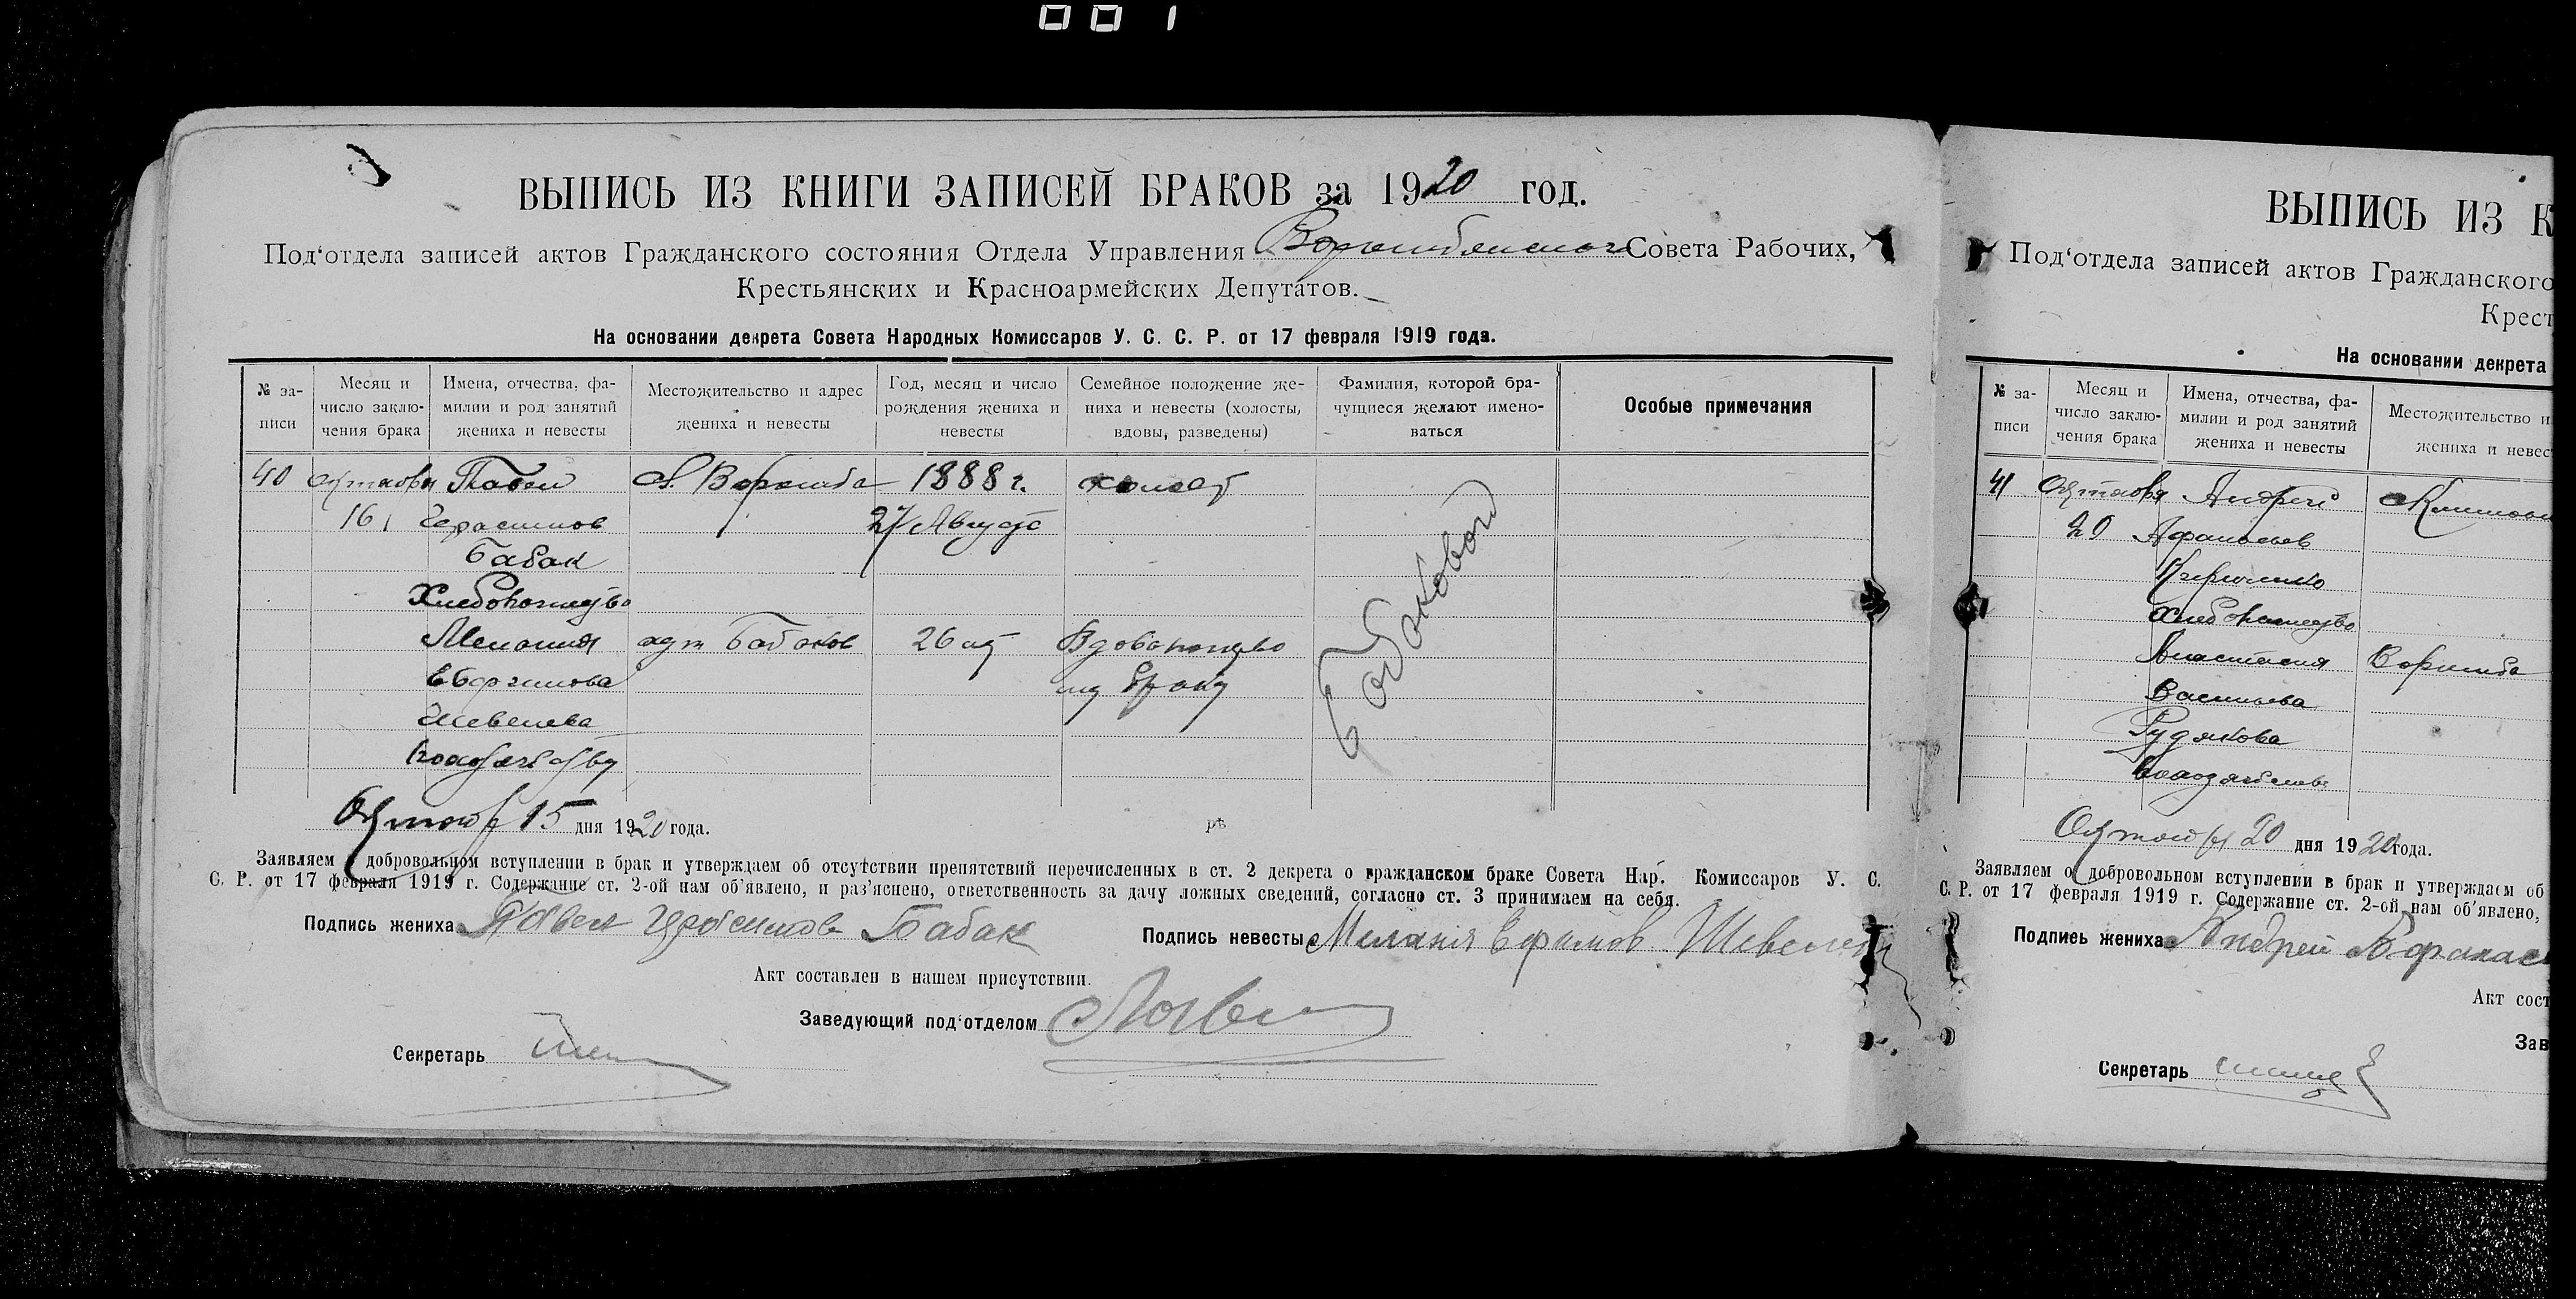 001
ВЫПИСЬ ИЗ КНИГИ ЗАПИСЕЙ БРАКОВ за 1920 год.
Под‘отдела записей актов Гражданского состояния Отдела Управления Ворожбянского Совета Рабочих,
Крестьянских и Красноармейских Депутатов.
На основании декрета Совета Народных Комиссаров У. С. С. Р. от 17 февраля 1919 года.
№ за-
писи
Месяц и
число заклю-
чения брака
Имена, отчества, фа-
милии и род занятий
жениха и невесты
Местожительство и адрес
жениха и невесты
Год, месяц и число
рождения жениха и
невесты
Семейное положение же-
ниха и невесты (холосты,
вдовы, разведены)
Фамилия, которой бра-
чущиеся желают имено-
ваться
Особые примечания
40 Октября Павел С. Ворожба 1888 г. холост
16 Герасимов 27 Августа
Бабак
Хлебопашество
Мелания Бабаков 26 лет Вдова по
Ефимова браку
Шевелева
Бабаковой
Октября 15 дня 1920 года.
Заявляем о добровольном вступлении в брак и утверждаем об отсутствии препятствий перечисленных в ст. 2 декрета о гражданском браке Совета Нар. Комиссаров У. С.
С. Р. от 17 февраля 1919 г. Содержание ст. 2-ой нам об‘явлено, и раз‘яснено, ответственность за дачу ложных сведений, согласно ст. 3 принимаем на себя.
Подпись жениха Павел Герасимов Бабак Подпись невесты Мелания Ефимов Шевелев
Акт составлен в нашем присутствии.
Заведующий под‘отделом
Секретарь
ВЫПИСЬ ИЗ К
Под‘отдела записей актов Гражданского
Крест
На основании декрета
№ за-
писи
Месяц и
число заклю-
чения брака
Имена, отчества, фа-
милии и род занятий
жениха и невесты
Местожительство и
жениха и невес
41 Октября Андрей
20 Афанасьев
Хлебопашество
Анастасия Ворожба
Васильева
Рудякова
Октября 20 дня 1920 года.
Заявляем о добровольном вступлении в брак и утверждаем об
С. Р. от 17 февраля 1919 г. Содержание ст. 2-ой нам об‘явлено,
Подпись жениха Андрей Афанас
Акт сост
Зав
Секретарь